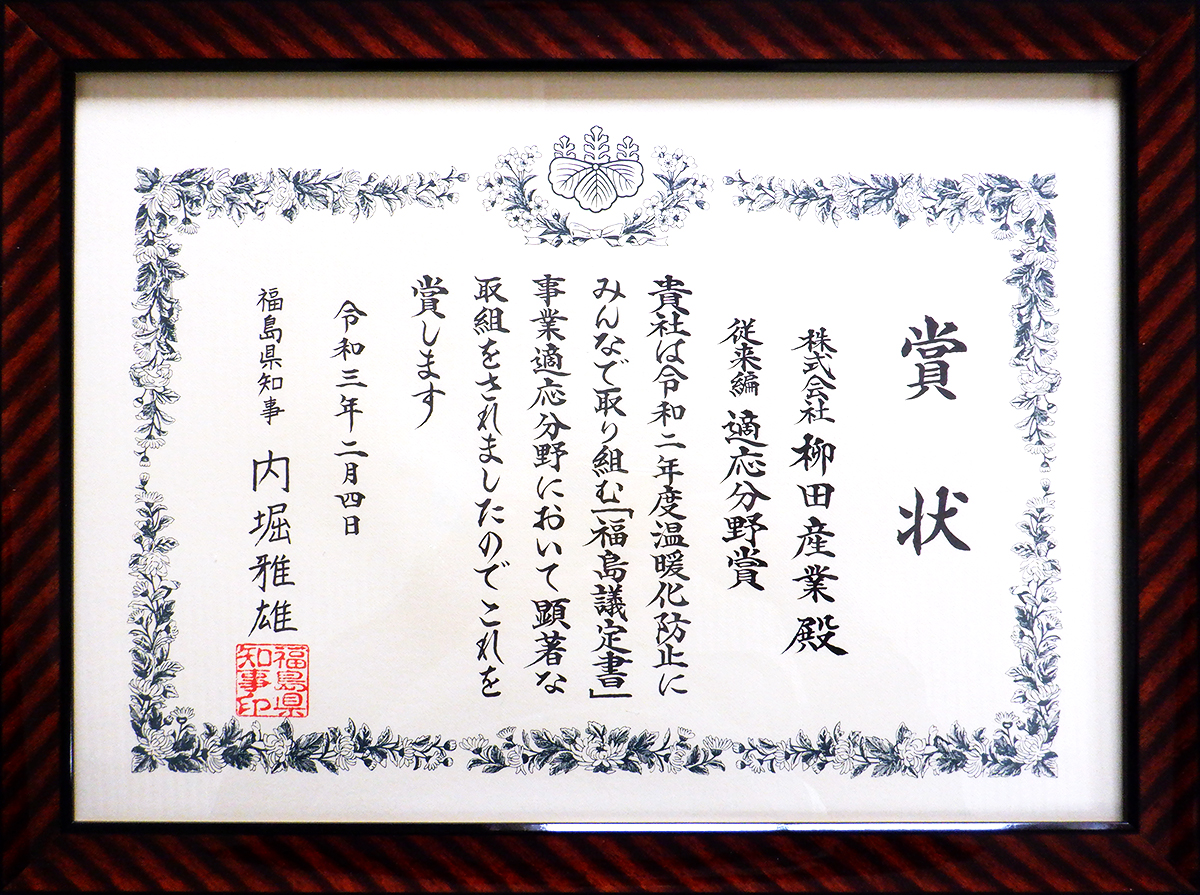 賞状
株式会社 柳田産業 殿
従来編 適応分野賞
貴社は令和二年度温暖化防止に
みんなで取り組む「福島議定書」
事業適応分野において顕著な
取組をされましたのでこれを
賞します
令和三年二月四日
福島県知事 内堀雅雄
福島県
知事印